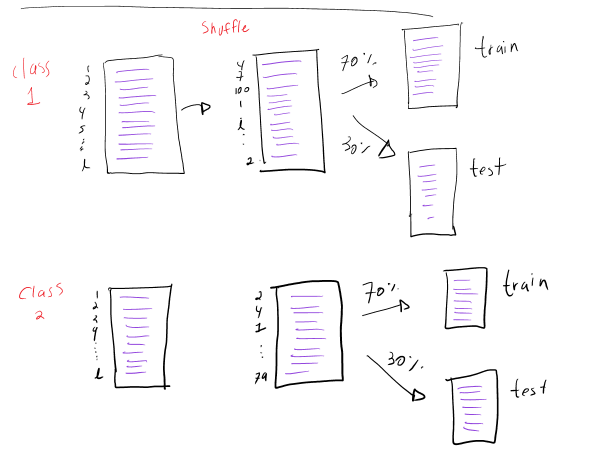 Shuffle
class
1
1
2
3
4
5
l
4
7
100
1
i
2
70%
train
30%
test
class
2
1
2
3
4
l
2
4
1
79
70%
train
30%
test